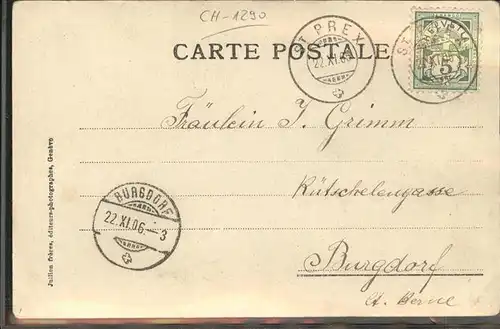 CH-1290
CARTE POSTALE
ST PREX
22.XI.06
HELVETIA
5
Fräulein J. Grimm
Rütschelengasse
Burgdorf
Ct. Berne
BURGDORF
22.XI.06.-3
Jullien frères, éditeurs-photographes, Genève